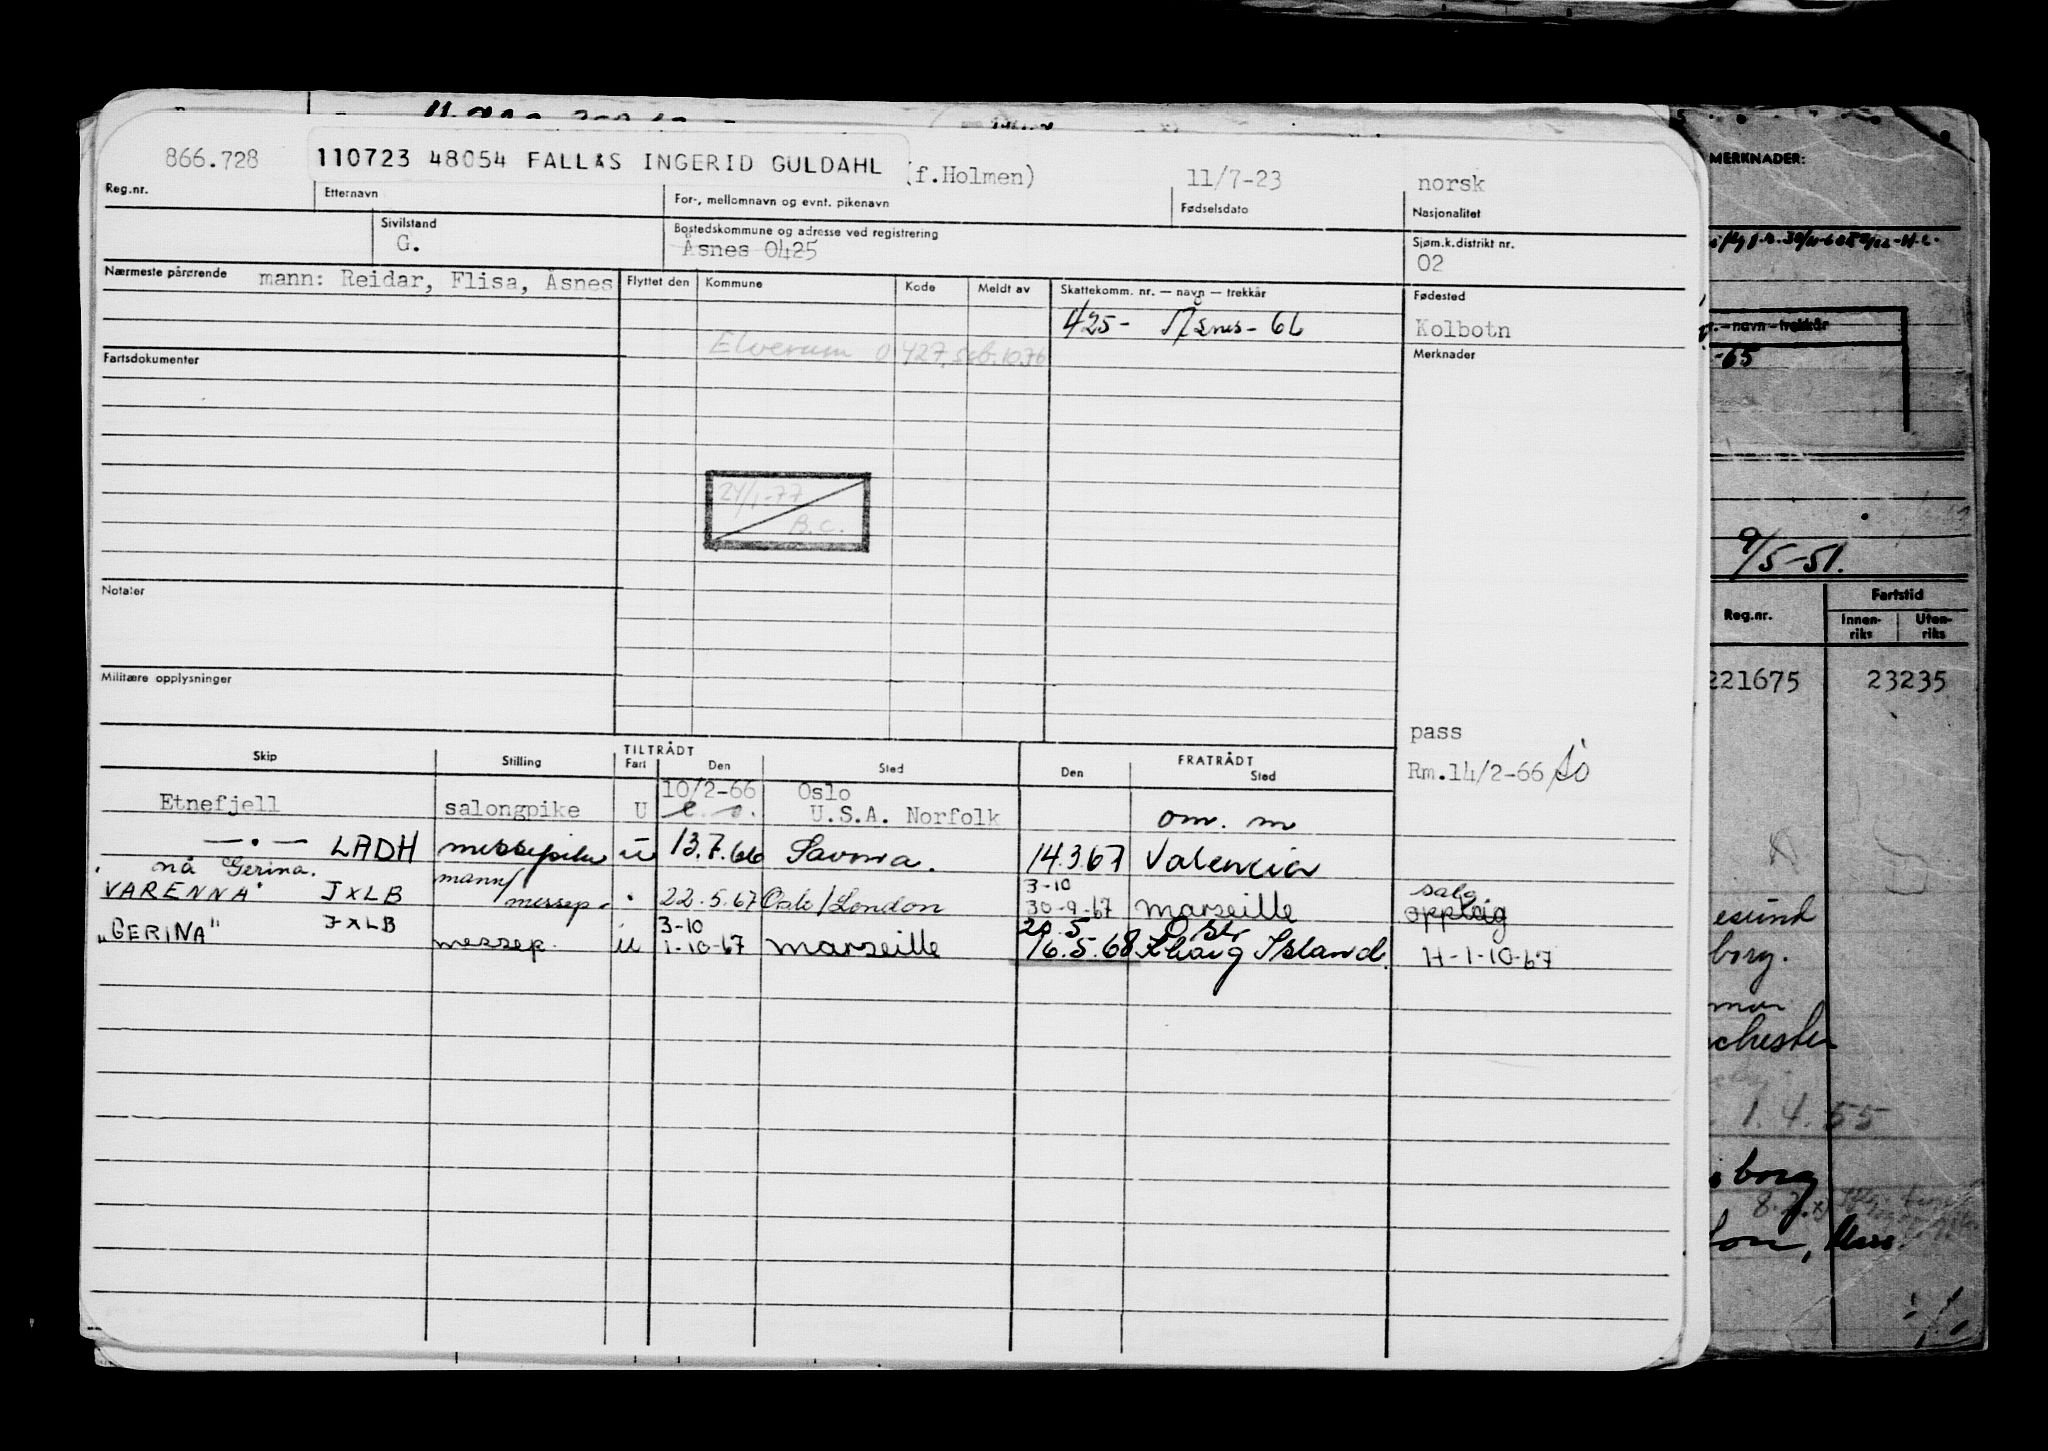 866.728 110723 48054 FALLÅS INGERID GULDAHL (f.Holmen) 11/7-23 norsk
Reg.nr. Etternavn For-, mellomnavn og evnt. pikenavn Fødselsdato Nasjonalitet
Sivilstand Bostedskommune og adresse ved registrering Sjøm.k.distrikt nr.
G. Åsnes 0425 02
Nærmeste pårørende mann: Reidar, Flisa, Åsnes Flyttet den Kommune Kode Meldt av Skattekomm. nr. — navn — trekkår Fødested
425- Åsnes - 66 Kolbotn
Elverum 0427, skb. 10.76
Fartsdokumenter Merknader
24/1-77
B.C.
Notater
Militære opplysninger
pass
Rm.14/2-66
TILTRÅDT FRATRÅDT
Skip Stilling Fart Den Sted Den Sted
10/2-66 Oslo
Etnefjell salongpike U U.S.A. Norfolk om. m
— . — LADH messepike U 13.7.66 Savona. 14.3.67 Valencia
nå Gerina. mann/ 3-10 salg
"VARENNA" JXLB messep. 22.5.67 Oslo/London 30-9-67 Marseille opplag
3-10 20.5
"GERINA" JXLB messep. U 1-10-67 Marseille 16.5.68 Kharg Island. H-1-10-67
MERKNADER:
-navn-trekkår
-65
9/5-51.
Reg.nr. Fartstid
Innen-riks Uten-riks
221675 23235
esund
borg.
chester
1.4.55
borg